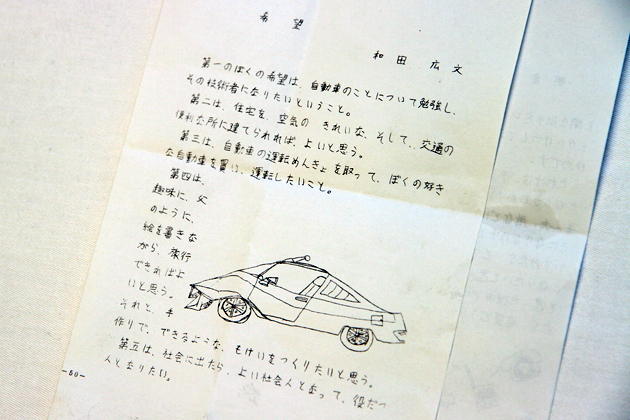 希望
和田 広文
第一のぼくの希望は、自動車のことについて勉強し、
その技術者になりたいということ。
第二は、住宅を、空気の きれいな、そして、交通の
便利な所に建てられれば、よいと思う。
第三は、自動車の運転めんきょを取って、ぼくの好き
な自動車を買い、運転したいこと。
第四は、
趣味に、父
のように、
絵を書きな
がら、旅行
できればよ
いと思う。
それと、手
作りで、できるような、もけいをつくりたいと思う。
第五は、社会に出たら、よい社会人となって、役だつ
人となりたい。
-50-